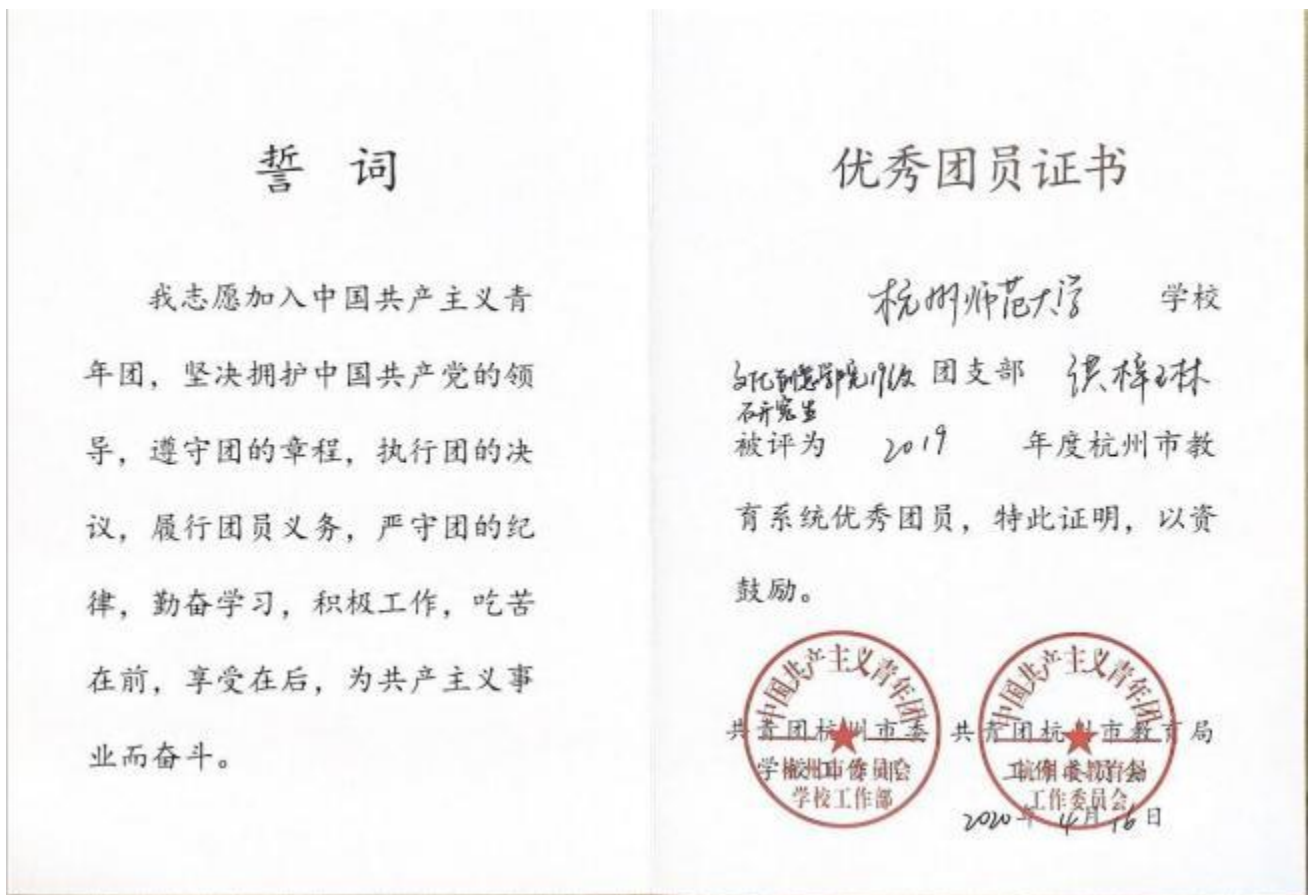 誓 词
我志愿加入中国共产主义青
年团，坚决拥护中国共产党的领
导，遵守团的章程，执行团的决
议，履行团员义务，严守团的纪
律，勤奋学习，积极工作，吃苦
在前，享受在后，为共产主义事
业而奋斗。
优秀团员证书
杭州师范大学 学校
文化创意学院19级 团支部 洪梓琳
研究生
被评为 2019 年度杭州市教
育系统优秀团员，特此证明，以资
鼓励。
中国共产主义青年团
杭州市委员会
学校工作部
中国共产主义青年团
杭州市教育局
工作委员会
共青团杭州市委 共青团杭州市教育局
2020年4月16日